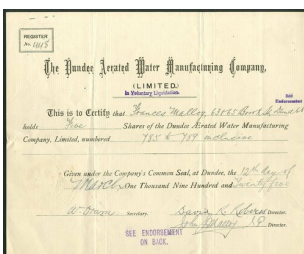 REGISTER
No.
The Dundee Aerated Water Manufacturing Company,
(LIMITED.)
In Voluntary Liquidation.
See
Endorsement
This is to Certify that Frances Malloy, 63 & 65
holds Five Shares of the Dundee Aerated Water Manufacturing
Company, Limited, numbered 785 to 789 inclusive
Given under the Company's Common Seal, at Dundee, the 12th day of
March One Thousand Nine Hundred and Twenty five
Secretary. David K. Roberts Director.
John Malloy Director.
SEE ENDORSEMENT
ON BACK.